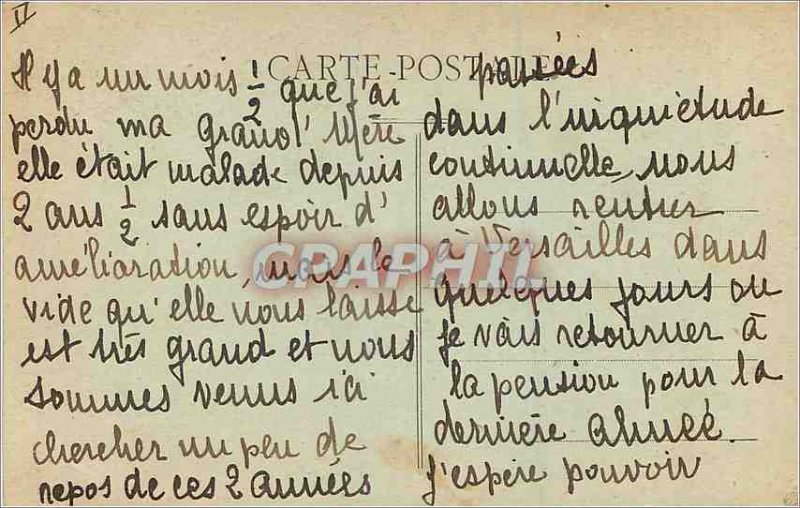 II
CARTE-POSTALE
Il y a un mois 1/2 que j'ai
perdu ma Grand' Mère
elle était malade depuis
2 ans 1/2 sans espoir d'
amélioration, mais le
vide qu'elle nous laisse
est très grand et nous
sommes venus ici
chercher un peu de
repos de ces 2 années
passées
dans l'inquiétude
continuelle, nous
allons rentrer
à Versailles dans
quelques jours ou
je vais retourner à
la pension pour la
dernière année.
j'espère pouvoir
CPAPHIL